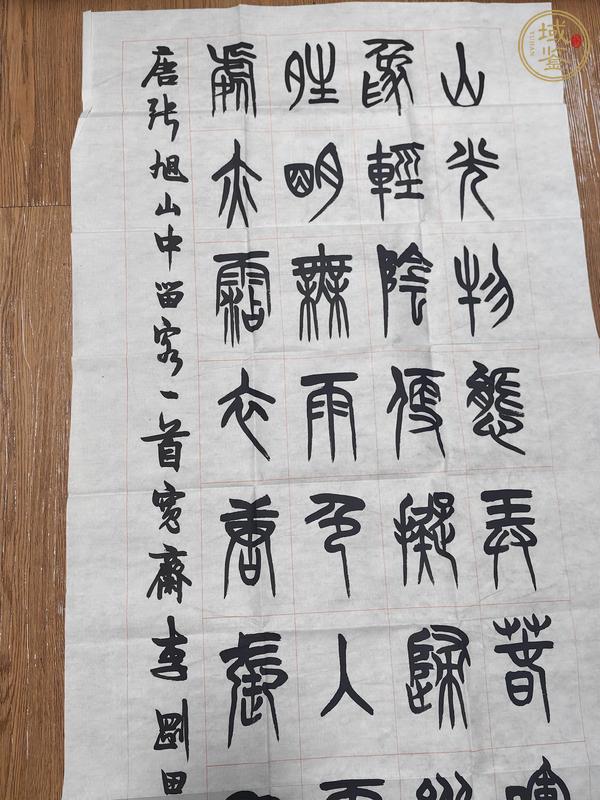 山光物態弄春暉
為輕陰便擬歸縱
夝明無雨色入雲
處亦霑衣
唐張旭山中留客一首寬齋李剛田
域鑒
YUJIAN